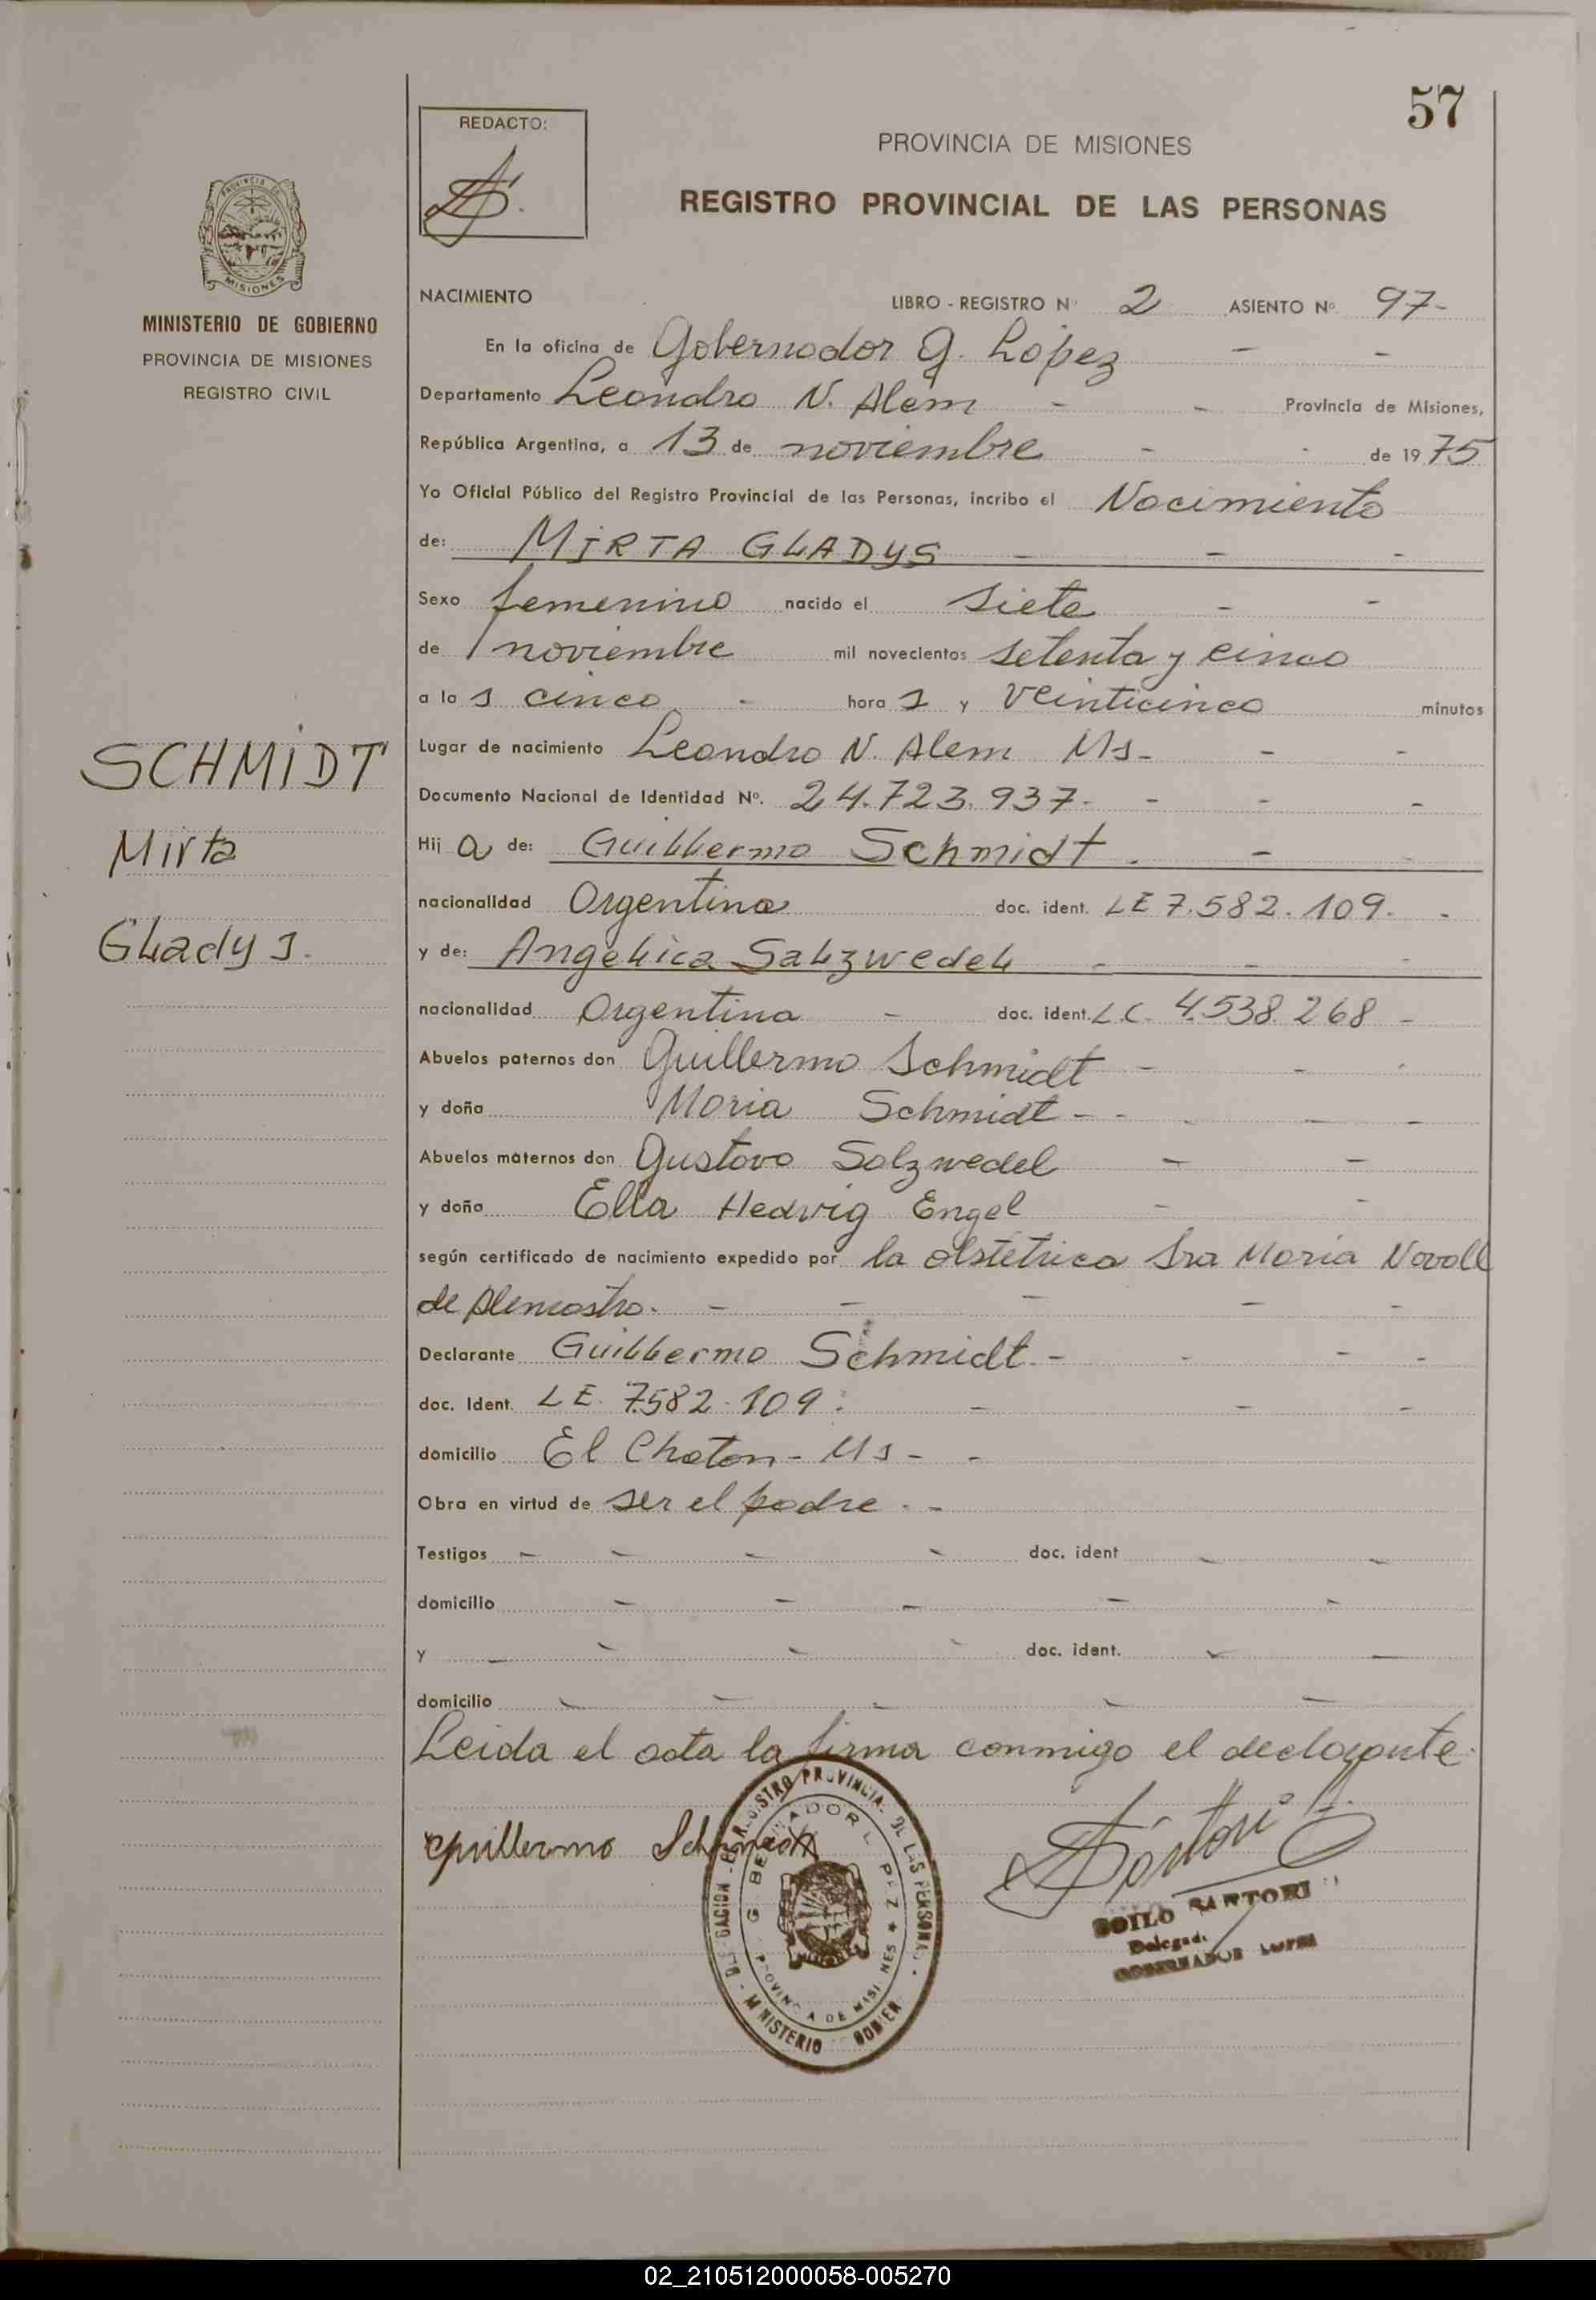 57
REDACTO:
PROVINCIA DE MISIONES
REGISTRO PROVINCIAL DE LAS PERSONAS
PROVINCIA DE
MISIONES
MINISTERIO DE GOBIERNO
PROVINCIA DE MISIONES
REGISTRO CIVIL
NACIMIENTO LIBRO - REGISTRO Nº 2 ASIENTO Nº 97-
En la oficina de Gobernador G. López - -
Departamento Leandro N. Alem - - Provincia de Misiones,
República Argentina, a 13 de noviembre - - de 19 75
Yo Oficial Público del Registro Provincial de las Personas, incribo el Nacimiento
de: MIRTA GLADYS - - -
Sexo femenino nacido el siete - -
de noviembre mil novecientos setenta y cinco
a la s cinco - hora s y veinticinco minutos
Lugar de nacimiento Leandro N. Alem Ms- - -
Documento Nacional de Identidad Nº. 24.723.937- - - -
Hij a de: Guillermo Schmidt. - -
nacionalidad Argentina doc. ident. LE 7.582.109. -
y de: Angelica Salzwedel - - -
nacionalidad Argentina - doc. ident. L.C. 4.538.268 -
Abuelos paternos don Guillermo Schmidt - - -
y doña Maria Schmidt - - - - -
Abuelos maternos don Gustavo Salzwedel - -
y doña Ella Hedwig Engel - -
según certificado de nacimiento expedido por la obstétrica Sra Maria
de - - - - -
Declarante Guillermo Schmidt - - - -
doc. Ident. LE. 7.582.109. - - -
domicilio El Chaton - Ms - -
Obra en virtud de ser el padre - -
Testigos - - - - doc. ident - -
domicilio - - - - -
y - - - - doc. ident. - -
domicilio - - - - -
Leida el acta la firma conmigo el declarante.
Guillermo Schmidt
SCHMIDT
Mirta
Gladys.
MINISTERIO
PROVINCIA DE MISIONES
MISIONES
Sartori
SOILO SARTORI
Delegado
GOBERNADOR LOPEZ
02_210512000058-005270